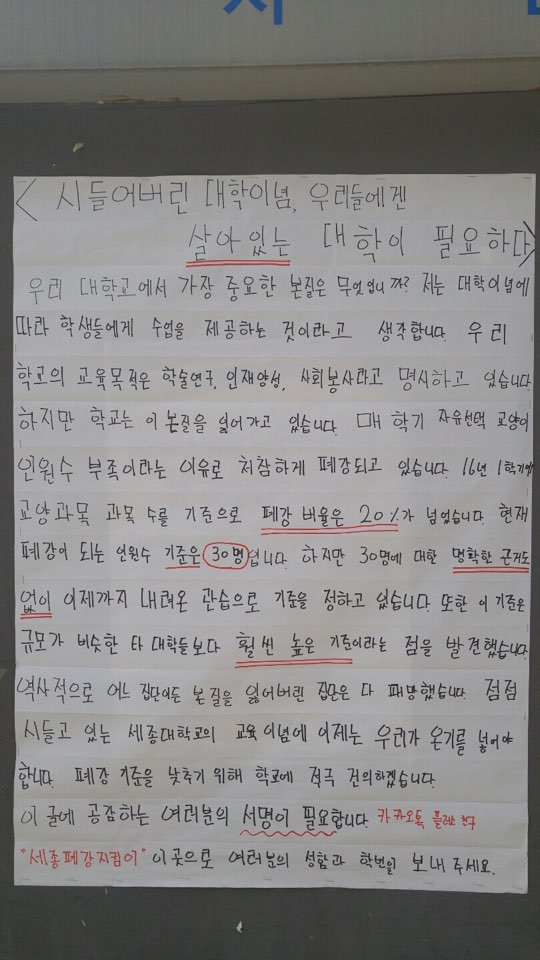 <시들어버린 대학이념, 우리들에겐
살아있는 대학이 필요하다>
우리 대학교에서 가장 중요한 본질은 무엇입니까? 저는 대학이념에
따라 학생들에게 수업을 제공하는 것이라고 생각합니다. 우리
학교의 교육목적은 학술연구, 인재양성, 사회봉사라고 명시하고 있습니다
하지만 학교는 이 본질을 잃어가고 있습니다. 매 학기 자유선택 교양이
인원수 부족이라는 이유로 처참하게 폐강되고 있습니다. 16년 1학기에
교양과목 과목 수를 기준으로 폐강 비율은 20%가 넘었습니다. 현재
폐강이 되는 인원수 기준은 30명입니다. 하지만 30명에 대한 명확한 근거도
없이 이제까지 내려온 관습으로 기준을 정하고 있습니다. 또한 이 기준은
규모가 비슷한 타 대학들보다 훨씬 높은 기준이라는 점을 발견했습니다.
역사적으로 어느 집단이든 본질을 잃어버린 집단은 다 패망했습니다. 점점
시들고 있는 세종대학교의 교육 이념에 이제는 우리가 온기를 넣어야
합니다. 폐강 기준을 낮추기 위해 학교에 적극 건의하겠습니다.
이 글에 공감하는 여러분의 서명이 필요합니다. 카카오톡 플러스 친구
"세종폐강지킴이" 이곳으로 여러분의 성함과 학번을 보내 주세요.